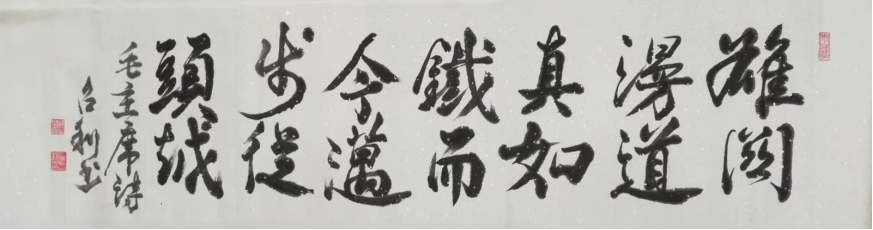 雄関
漫道
真如
鐵而
今邁
步從
頭越
毛主席詩
召利书